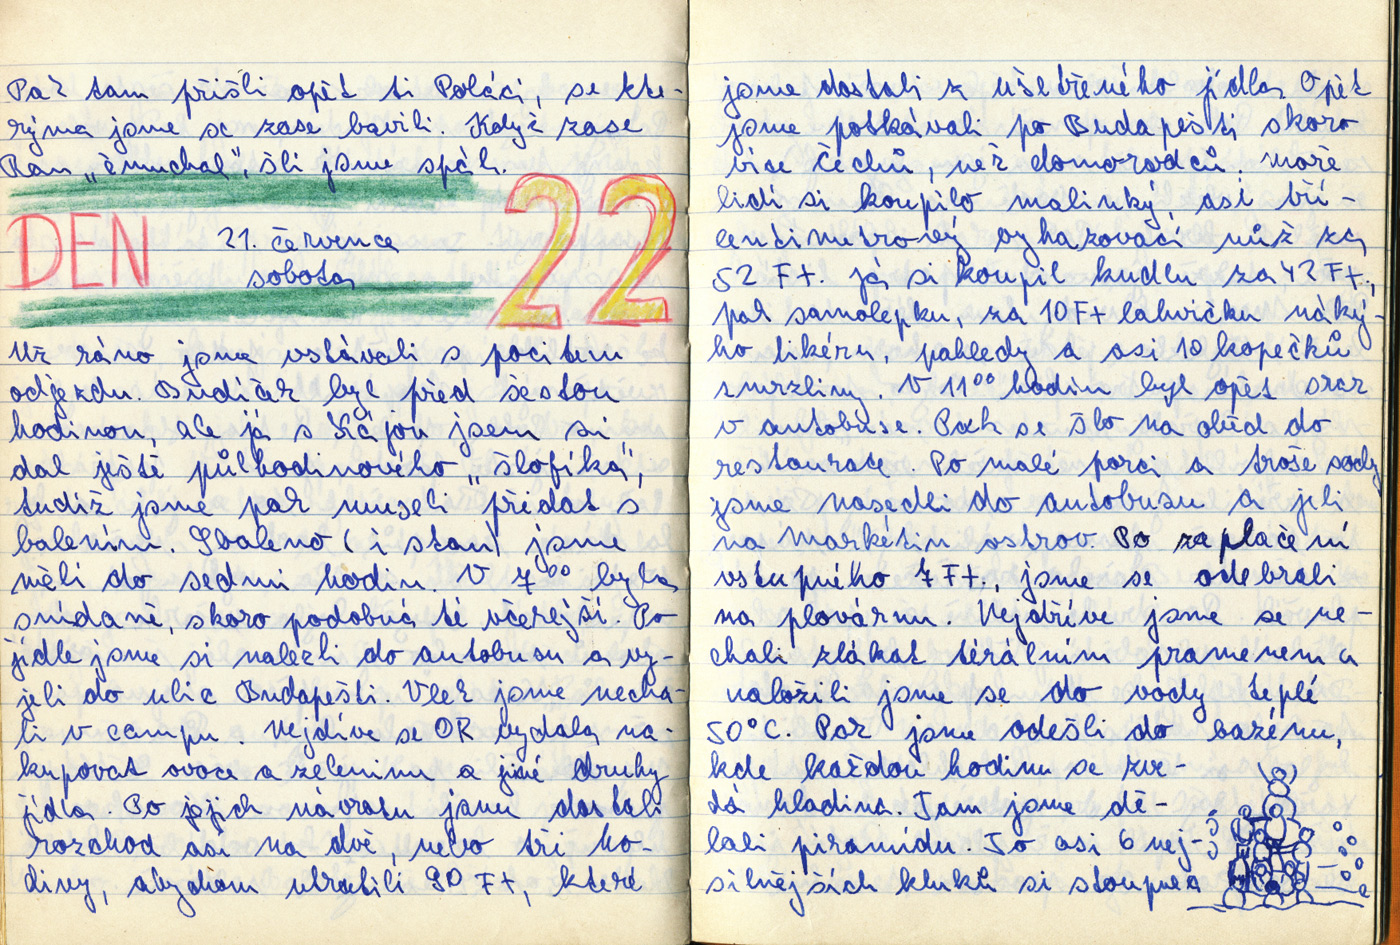 Pak tam přišli opět ti Poláci, se kte-
rýma jsme se zase bavili. Když zase
Ran „čmuchal", šli jsme spát.
DEN 22
21. července
sobota
Už ráno jsme vstávali s pocitem
odjezdu. Budíček byl před šestou
hodinou, ale já s Kájou jsem si
dal ještě půlhodinového „šlofíka",
tudíž jsme pak museli přidat s
balením. Sbaleno (i stan) jsme
měli do sedmi hodin. V 7⁰⁰ byla
snídaně, skoro podobná té včerejší. Po
jídle jsme si nalezli do autobusu a vy-
jeli do ulic Budapešti. Vlek jsme necha-
li v campu. Nejdíve se OR vydala na-
kupovat ovoce a zeleninu a jiné druhy
jídla. Po jejich návratu jsme dostali
rozchod asi na dvě, nebo tři ho-
diny, abychom utratili 90 Ft, které
jsme dostali z ušetřeného jídla. Opět
jsme potkávali po Budapešti skoro
více Čechů, než domorodců. Moře
lidí si koupilo malinký, asi tří-
centimetrový vyhazovací nůž za
52 Ft. Já si koupil kudlu za 42 Ft,
pak samolepku, za 10 Ft lahvičku náký-
ho likéru, pohledy a asi 10 kopečků
zmrzliny. V 11⁰⁰ hodin byl opět sraz
v autobuse. Pak se šlo na oběd do
restaurace. Po malé porci a troše sody
jsme nasedli do autobusu a jeli
na Markétin ostrov. Po zaplacení
vstupného 7 Ft, jsme se odebrali
na plovárnu. Nejdříve jsme se ne-
chali zlákat térálním pramenem a
naložili jsme se do vody teplé
50°C. Pak jsme odešli do bazénu,
kde každou hodinu se zve-
dá hladina. Tam jsme dě-
lali piramidu. To asi 6 nej-
silnějších kluků si stoupne